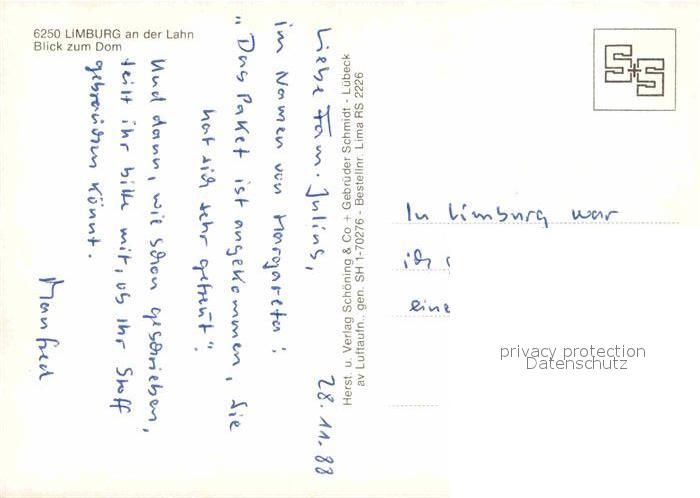 6250 LIMBURG an der Lahn
Blick zum Dom
28.11.88
Liebe Fam. Julius,
im Namen von Margareta:
"Das Paket ist angekommen, sie
hat sich sehr gefreut".
Und dann, wie schon geschrieben,
teilt ihr bitte mit, ob Ihr Stoff
gebrauchen könnt.
Manfred
Herst. u. Verlag Schöning & Co + Gebrüder Schmidt - Lübeck
av Luftaufn., gen. SH 1-70276 - Bestellnr. Lima RS 2226
S+S
In Limburg war
ich
eine
privacy protection
Datenschutz